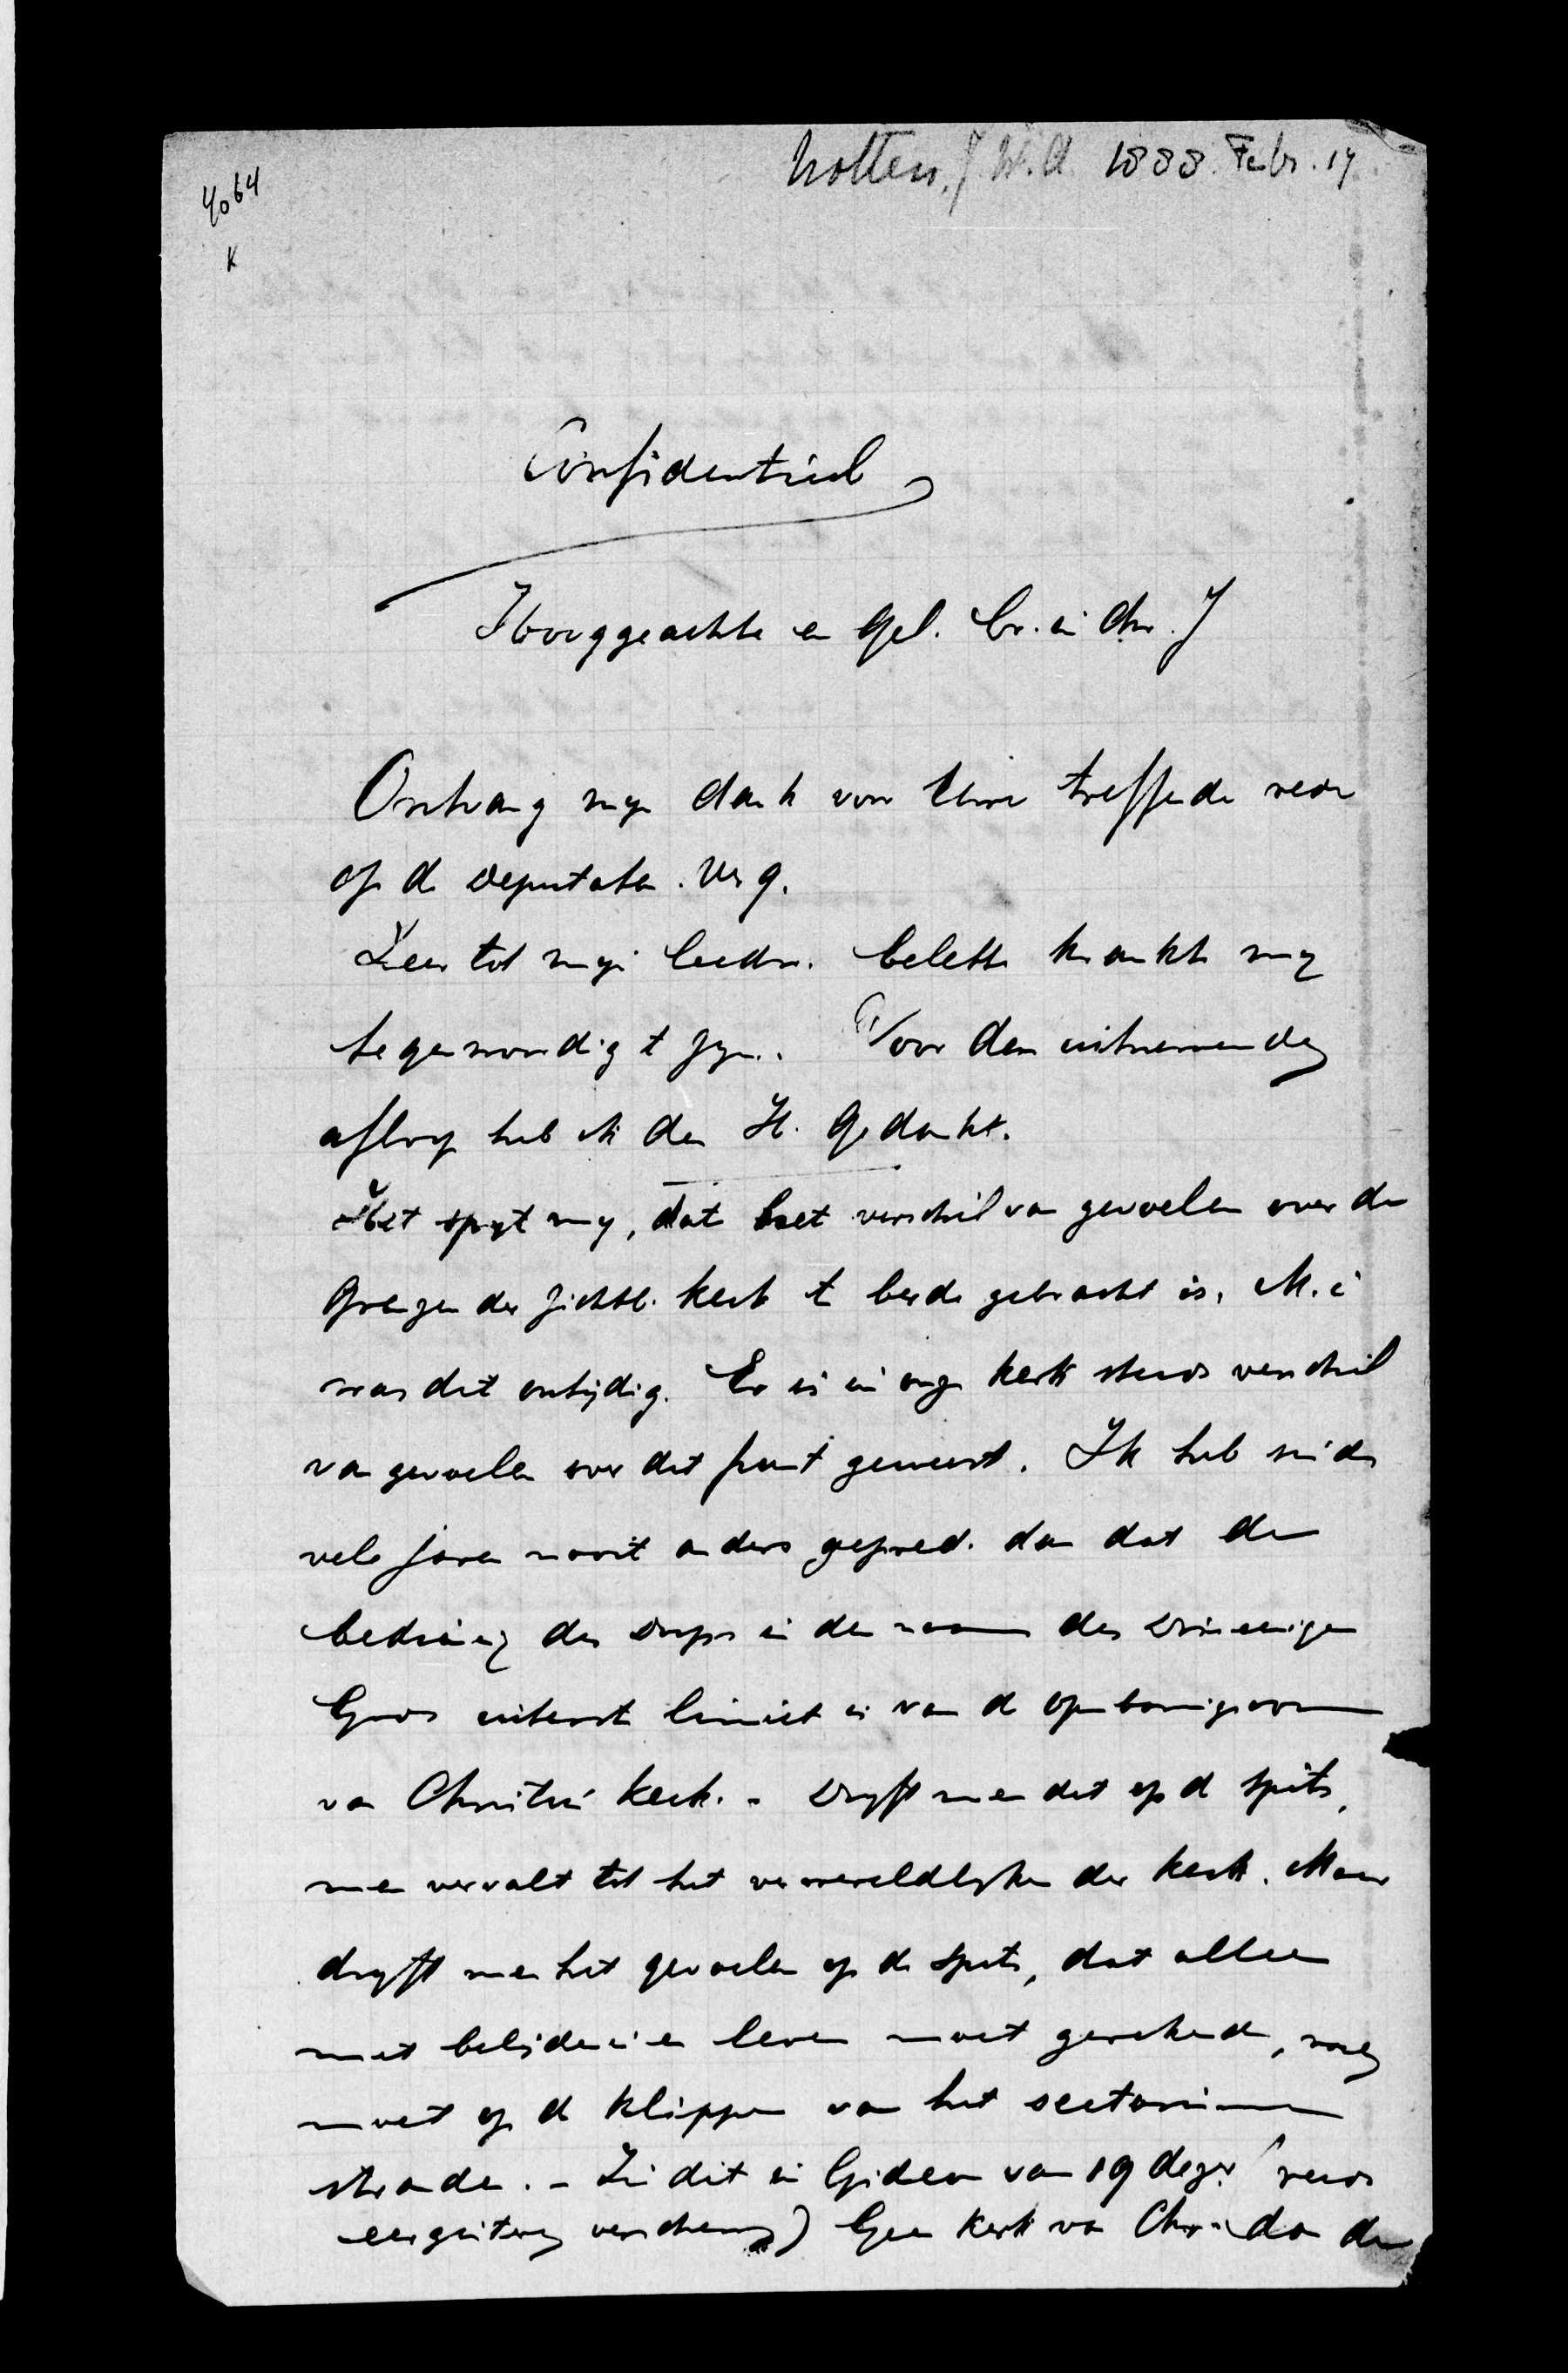 4064
K
Notten, J. W. A. 1888. Febr. 17
Confidentieel
Hooggeachte en Gel. br. in Chr. J
Ontvang myn dank voor Uwe treffende rede
op de Deputaten. Verg.
Zeer tot myn leedw. belette krankh my
tegenwoordig t zyn. Voor den uitnemenden
afloop heb ik den H. Gedankt.
Het spyt my, dat het verschil van gevoelen over de
Grenzen der zichtb. Kerk te berde gebracht is. M.i
was dat ontijdig. Er is in onze Kerk steeds verschil
van gevoelen over dat punt geweest. Ik heb sinds
vele jaren nooit anders gepred. dan dat de
bediening des Doops in den naam des Drieenigen
Gods uiterste limiet is van de openbaringsvorm
van Christus Kerk. - Dryft men dat op d spits,
men vervalt tot het verwereldlyken der Kerk. Maar
dryft men het gevoelen op de spits, dat alleen
met belijdenis en leven moet gerekend, men
moet op d klippen van het sectarisme
stranden. - Zie dit in Gideon van 19 dezer (reeds
eergisteren verschenen) Geen Kerk van Chr. dan de